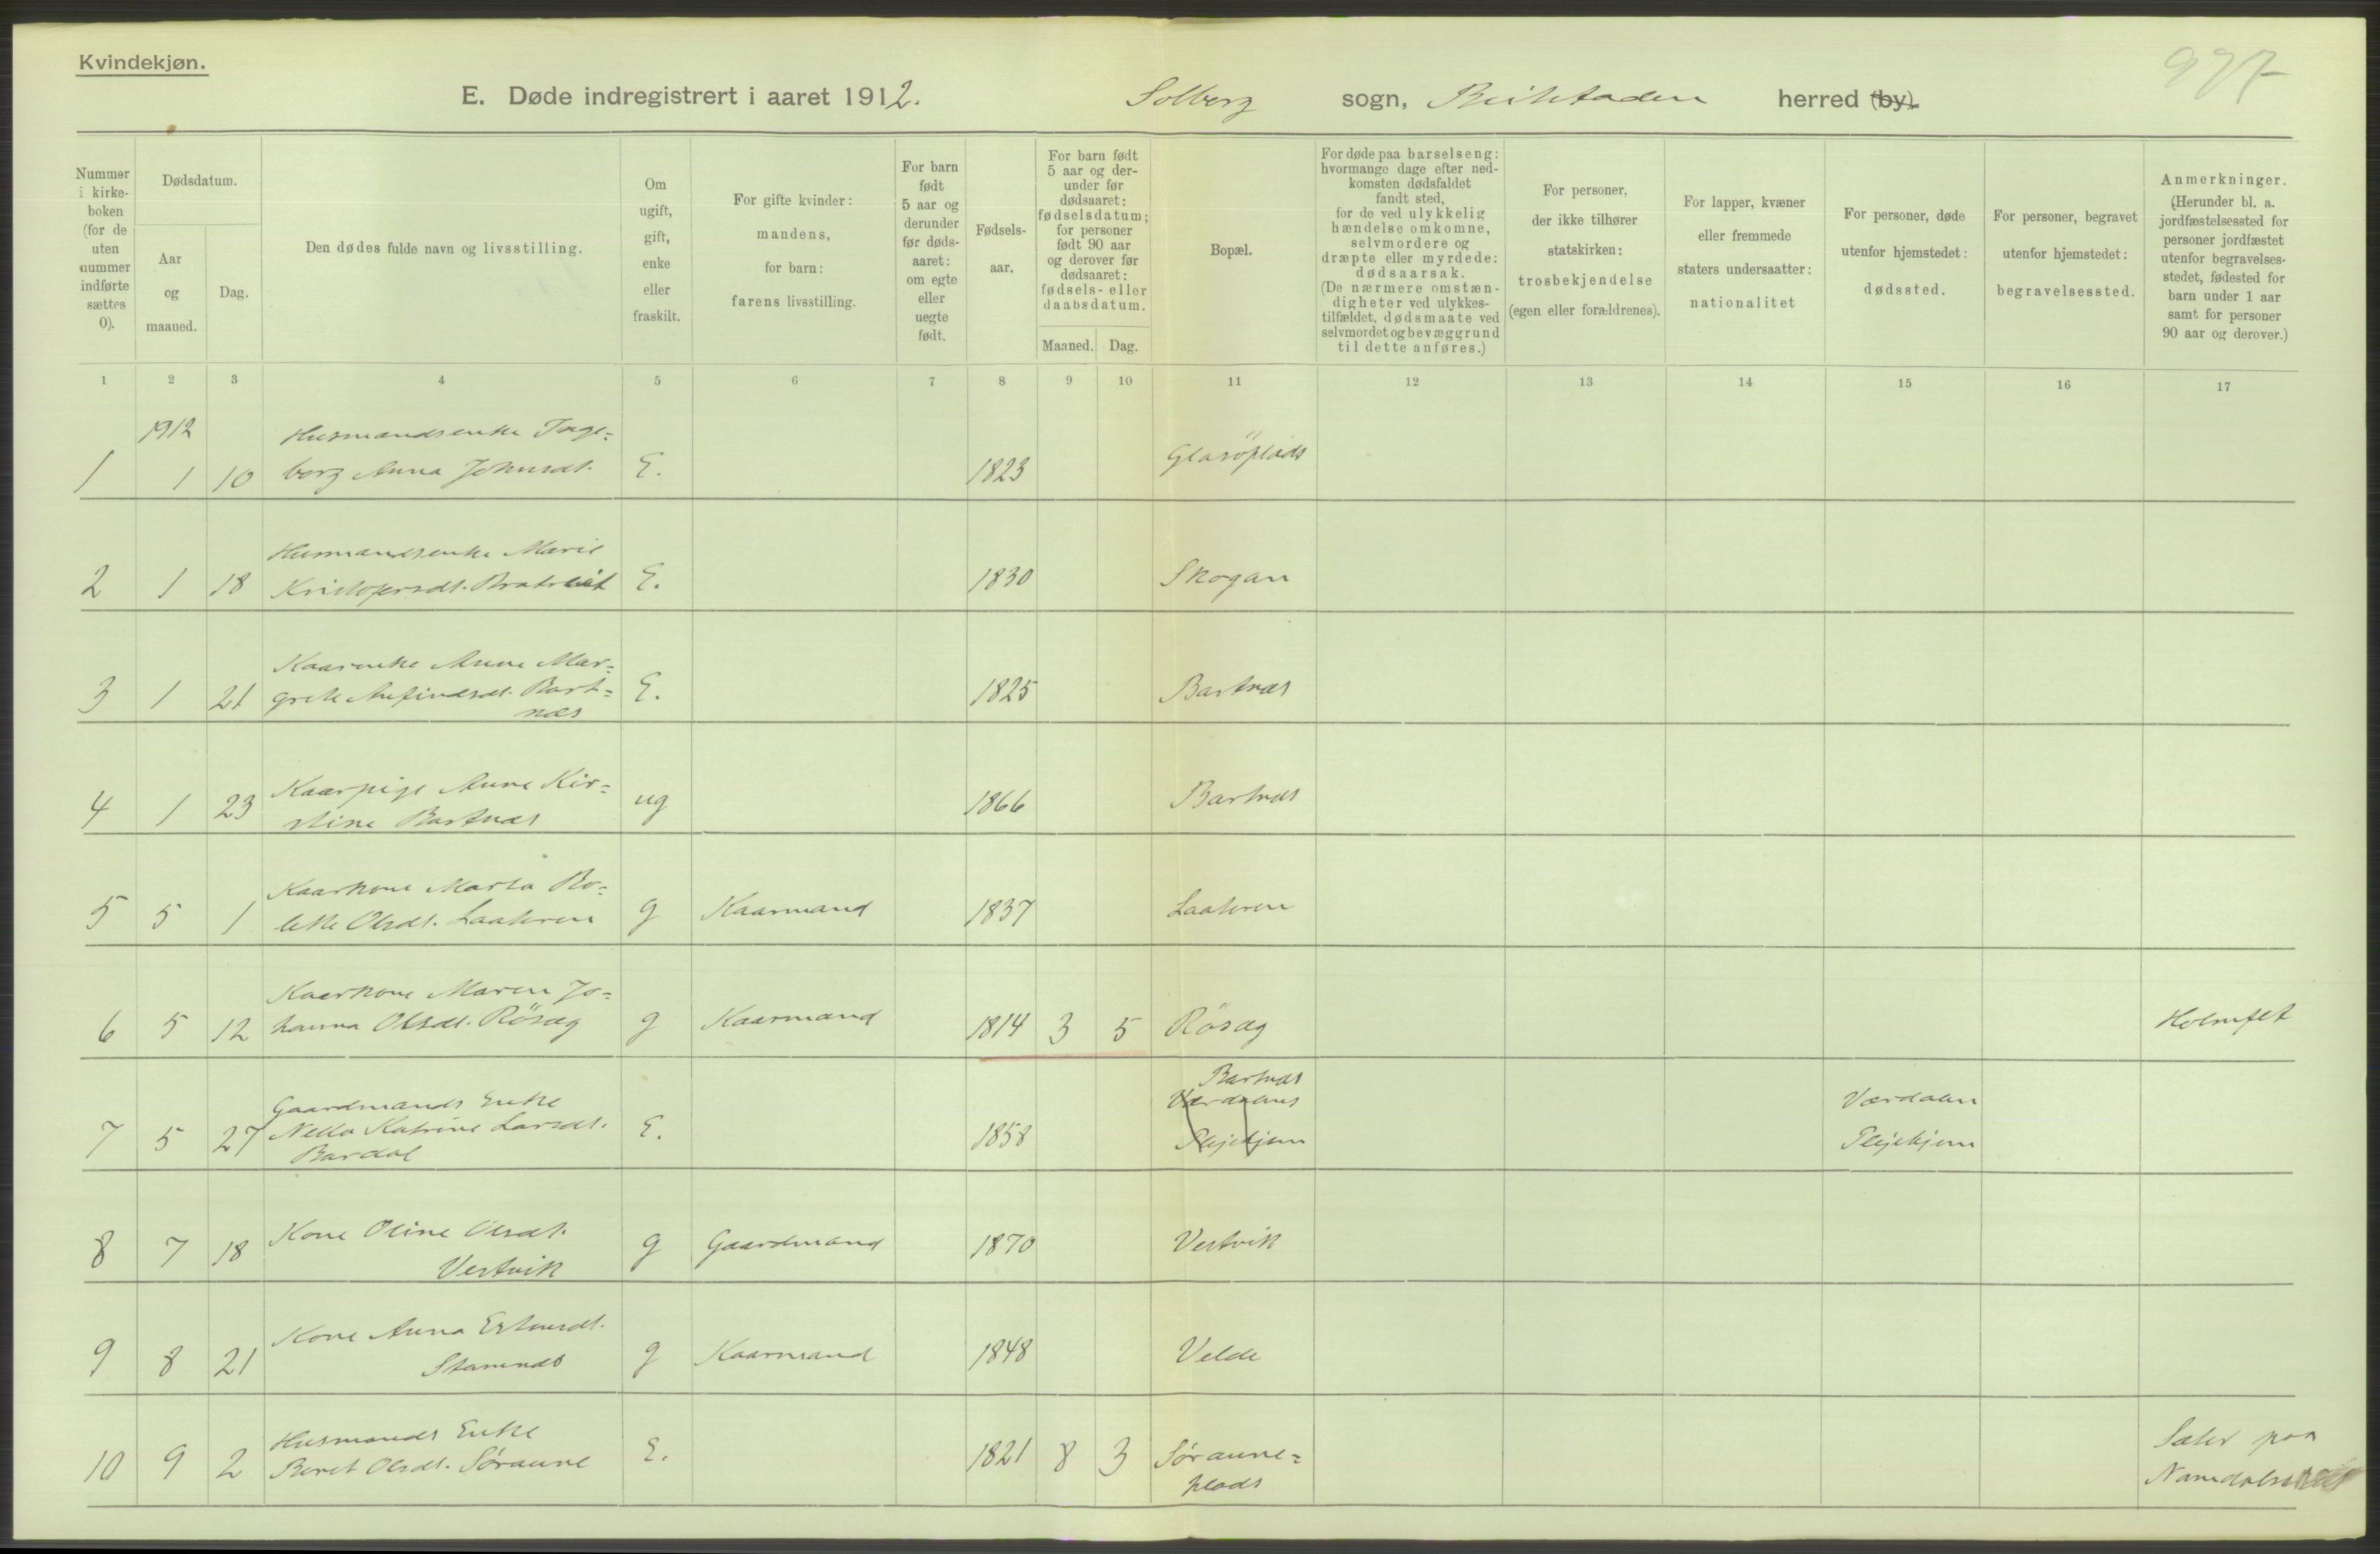 Kvindekjøn.
977
E. Døde indregistrert i aaret 1912. Solberg sogn, Beitstaden herred (by).
Nummer i kirke-boken (for de uten nummer indførte sættes 0).
Dødsdatum.
Aar og maaned.
Dag.
Den dødes fulde navn og livsstilling.
Om ugift, gift, enke eller fraskilt.
For gifte kvinder: mandens, for barn: farens livsstilling.
For barn født 5 aar og derunder før døds-aaret: om egte eller uegte født.
Fødsels-aar.
For barn født 5 aar og der-under før dødsaaret: fødselsdatum; for personer født 90 aar og derover før dødsaaret: fødsels- eller daabsdatum.
Maaned. Dag.
Bopæl.
For døde paa barselseng: hvormange dage efter ned-komsten dødsfaldet fandt sted, for de ved ulykkelig hændelse omkomne, selvmordere og dræpte eller myrdede: dødsaarsak. (De nærmere omstæn-digheter ved ulykkes-tilfældet, dødsmaate ved selvmordet og bevæggrund til dette anføres.)
For personer, der ikke tilhører statskirken: trosbekjendelse (egen eller forældrenes).
For lapper, kvæner eller fremmede staters undersaatter: nationalitet
For personer, døde utenfor hjemstedet: dødssted.
For personer, begravet utenfor hjemstedet: begravelsessted.
Anmerkninger. (Herunder bl. a. jordfæstelsessted for personer jordfæstet utenfor begravelses-stedet, fødested for barn under 1 aar samt for personer 90 aar og derover.)
1 2 3 4 5 6 7 8 9 10 11 12 13 14 15 16 17
1912 Husmandsenke Inge=
1 1 10 borg Anna Johnsdt. E. 1823 Glasöplads
Husmandsenke Marie
2 1 18 Kristofersdt. Bratreit E. 1830 Skogan
Kaarenke Anne Mar=
3 1 21 grete Arfindsdt. Bart= E. 1825 Bartnæs
næs
Kaarpige Anne Kir=
4 1 23 stine Bartnæs ug 1866 Bartnæs
Kaarkone Marta Bo=
5 5 1 lette Olsdt. Laakeren g Kaarmand 1837 Laakeren
Kaarkone Maren Jo=
6 5 12 hanna Olsdt. Rösæg g Kaarmand 1814 3 5 Rösæg Holmflet
Gaardmands Enke Bartnæs
Værdalens Værdalen
7 5 27 Nella Katrine Larsdt. E. 1858 Plejehjem Plejehjem
Bardal
8 7 18 Kone Oline Olsdt. g Gaardmand 1870 Vestvik
Vestvik
Kone Anna Estensdt.
9 8 21 Stamnæs g Kaarmand 1848 Velde
Husmands Enke Sæter paa
10 9 2 Beret Olsdt. Søraune E. 1821 8 3 Søraune=
plads